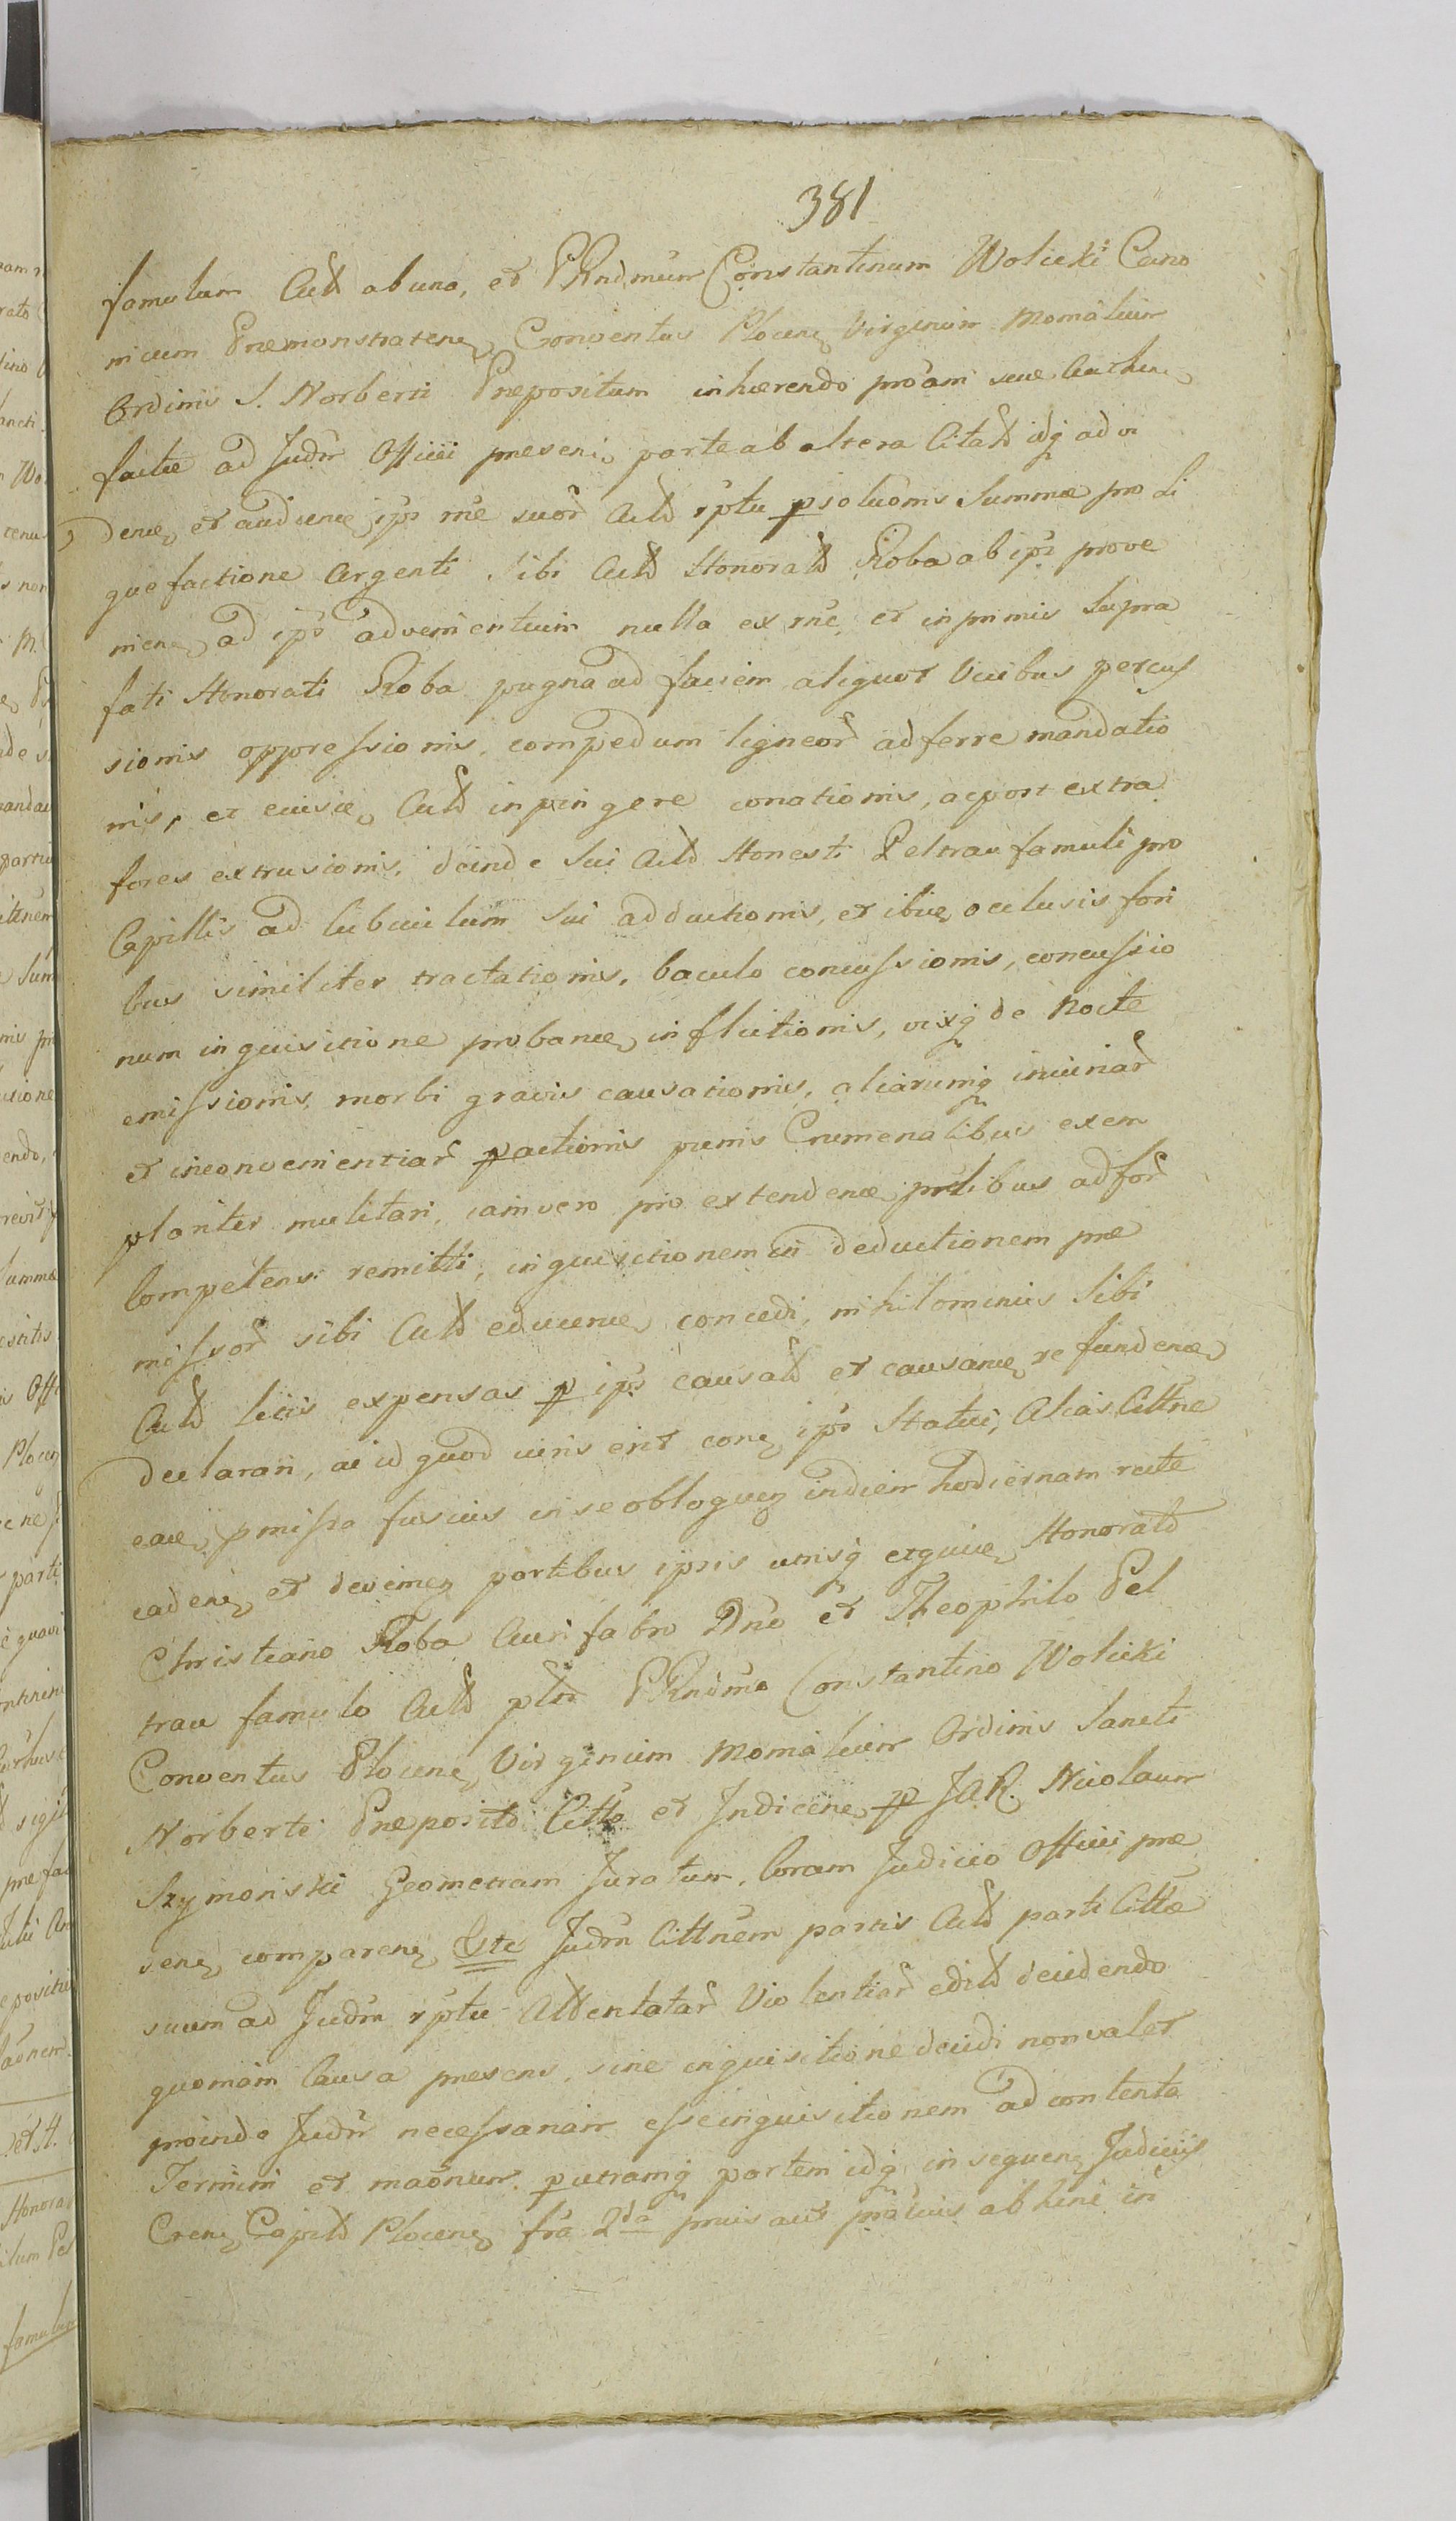 381
famulum Actt ab una, et PRndmum Constantinum Wolicki Cano
nicum Præmonstraten, Conventus Plocen, Virginum Monialium
Ordinis S. Norberti Præpositum inhærendo suæ
factæ ad Judm Officii præsen, parte ab altera Citatt idq ad vi
den, et audien, ips suor Actt rptu psolvonis Summæ pro Li
quefactione Argenti Sibi Actt Honoratt Roba ab ips prove
nien, ad ips advenientium nulla ex rne, et inprimis Supra
fati Honorati Roba pugna ad faciem aliquot Vicibus percus
sionis oppressionis, compedum ligneor adferre mandatio
nis, et Actt inpingere conationis, ac post extra
fores extrusionis, deinde Sui Actt Honesti Peltrau famuli pro
Capillis ad Cubiculum Sui adductionis, et ibiq occlusis fori
bus similiter tractationis, baculo concussionis, concussio
num inquisitione proban, inflictionis, vixq de Nocte
emissionis, morbi gravis causationis, aliarumq iniuriar
et inconvenientiar pactionis pænis Crimenalibus exem
plariter mulctari, iam vero pro extenden, ad for
Competens remitti, inquisitionem in deductionem præ
missor sibi Actt educen, concedi, nihilominus Sibi
Actt litis expensas p ips causatt et causan, refunden,
declarari, ac id quod iuris erit ips Statui, Alias Cittne
eaq, pmissa fusius in se obloquen in diem hodiernam recte
caden, et deveniem partibus ipsis utrisq Honoratt
Christiano Roba Aurifabro Dno et Theophilo Pel
trau famulo Actt PRndmo Constantino Wolicki
Conventus Plocen, Virginum Monialium Ordinis Sancti
Norberti Præposito Citto et Indicen, p JAR. Nicolaum
Szymoński Geometram Juratum, Coram Judicio Officii præ
sen, comparen, Qtc Judm Cittnem partis Actt parti Cittæ
suum ad Judm rptu Attentatar Violentiar editt decidendo
quoniam Causa præsens, sine inquisitione decidi non valet
proinde Judm necessariam esse inquisitionem ad contenta
Termini et maonum p utramq partem idq in sequen, Judiciis
Cren, Capitt Plocen, fra 2da pmis aut abhinc in